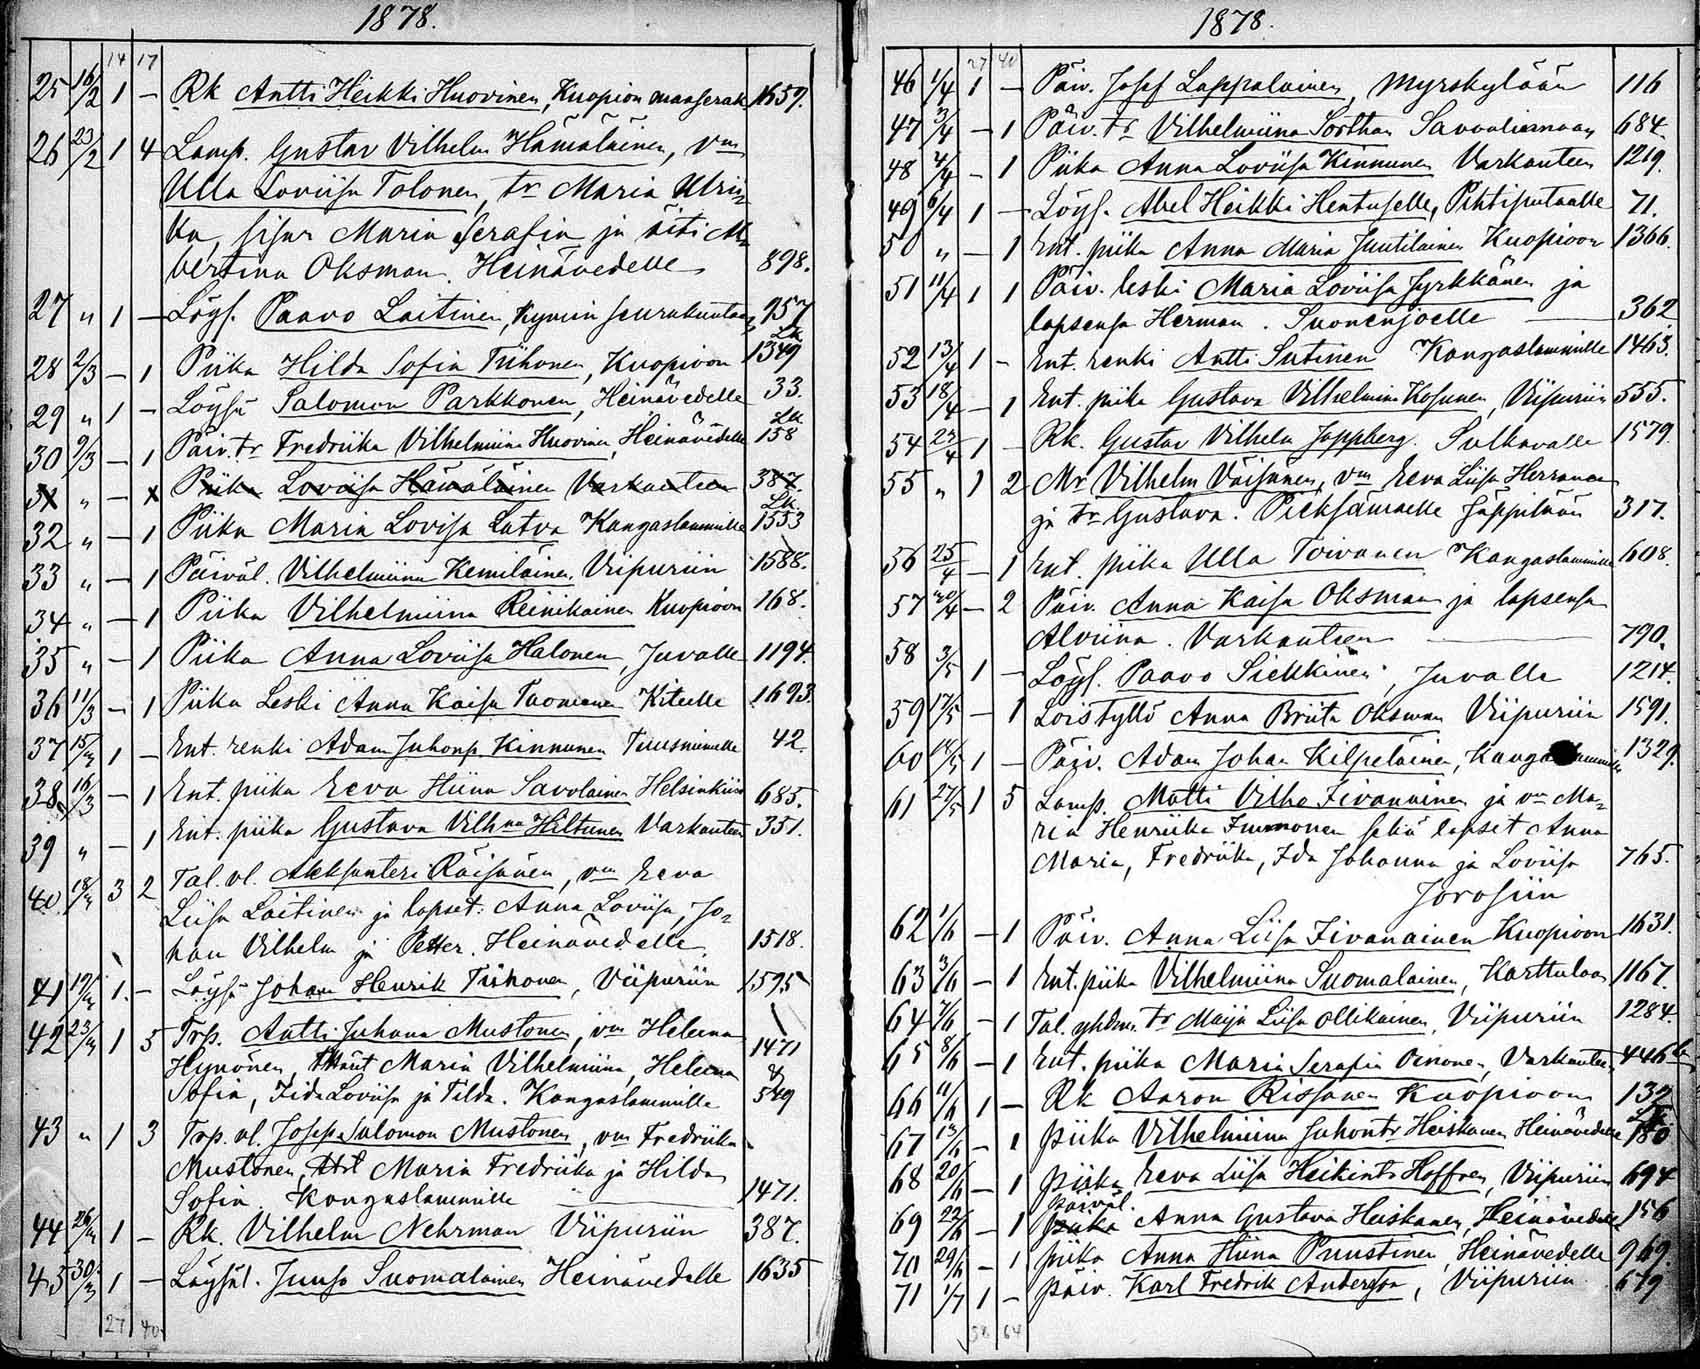 1878.
14 17
25 16/2 1 – Rk Antti Heikki Huovinen, Kuopion maaserak 1657.
26 23/2 1 4 Lamp. Gustav Vilhelm Hämäläinen, vm
Ulla Loviisa Tolonen, tr Maria Ulrii-
ka, sisar Maria Serafia ja äiti Al-
bertina Oksman. Heinävedelle 898.
27 „ 1 – Löys. Paavo Laitinen, Kymin seurakuntaan 957
Lk
28 2/3 – 1 Piika Hilda Sofia Tiihonen, Kuopioon 1349
29 „ 1 – Löysä Salomon Parkkonen, Heinävedelle 33.
Lk
30 9/3 – 1 Päiv. tr Fredriika Vilhelmiina Huovinen, Heinävedelle 158
31 „ – 1 Piika Loviisa Hämäläinen Varkauteen 387.
Lk.
32 „ – 1 Piika Maria Lovisa Latva Kangaslammille 1553
33 „ – 1 Päiväl. Vilhelmiina Kemiläinen, Viipuriin 1588.
34 „ – 1 Piika Vilhelmiina Reinikainen Kuopioon 168.
35 „ – 1 Piika Anna Loviisa Halonen, Juvalle 1194.
36 11/3 – 1 Piika Leski Anna Kaisa Tuomainen Kiteelle 1693.
37 15/3 1 – Ent. renki Adam Juhonp. Kinnunen Tuusniemelle 42.
38 16/3 – 1 Ent. piika Eeva Stiina Savolainen Helsinkiin 685.
39 „ – 1 Ent. piika Gustava Vilhna Hiltunen Varkauteen 351.
40 18/3 3 2 Tal. vl. Aleksanteri Räisänen, vm Eeva
Liisa Laitinen ja lapset: Anna Loviisa, Jo-
han Vilhelm ja Petter. Heinävedelle 1518.
41 19/3 1 – Löysä Johan Henrik Tiihonen, Viipuriin 1595
42 23/3 1 5 Trp. Antti Juhana Mustonen, vm Helena
Hynönen, tärät Maria Vilhelmiina, Helena 1471
Sofia, Iida Loviisa ja Tilda. Kangaslammille 549
43 „ 1 3 Trp. vl. Josep Salomon Mustonen, vm Fredriika
Mustonen, Maria Fredriika ja Hilda
Sofia. Kangaslammille 1471.
44 26/3 1 – Rk. Vilhelm Nehrman Viipuriin 387.
45 30/3 1 – Löysäl. Juuso Suomalainen Heinävedelle 1635
27 40
1878.
27 40
46 1/4 1 – Päiv. Josef Lappalainen, Myrskylään 116
47 3/4 – 1 Päiv. tr Vilhelmiina Sorthan Savonlinnaan 684.
48 4/4 – 1 Piika Anna Loviisa Kinnunen Varkauteen 1219.
49 6/4 1 – Löys. Abel Heikki Hentuselle, Pihtiputaalle 71.
50 „ – 1 Ent. piika Anna Maria Juutilainen Kuopioon 1366.
51 11/4 1 1 Päiv. leski Maria Loviisa Jyrkkänen ja
lapsensa Herman. Suonenjoelle 362
52 13/4 1 – Ent. renki Antti Sutinen Kangaslammille 1463.
53 18/4 – 1 Ent. piika Gustava Vilhelmiina Kosunen, Viipuriin 555.
54 23/4 1 – Rk. Gustav Vilhelm Joppberg. Sulkavalle 1579.
55 „ 1 2 Mr Vilhelm Väisänen, vm Eeva Liisa Herranen
ja tr Gustava. Pieksämäelle Jäppilään 317.
56 25/4 – 1 Ent. piika Ulla Toivanen Kangaslammille 608.
57 30/4 – 2 Päiv. Anna Kaisa Oksman ja lapsensa
Alviina. Varkauteen 790.
58 3/5 1 – Löysl. Paavo Siekkinen, Juvalle 1214.
59 17/5 – 1 Loistyttö Anna Briita Oksman Viipuriin 1591.
60 18/5 1 – Päiv. Adam Johan Kilpeläinen, Kangaslammille 1329.
61 27/5 1 5 Lamp. Matti Vilho Iivanainen ja vm Ma-
ria Henriika Immonen sekä lapset Anna
Maria, Fredriika, Ida Johanna ja Loviisa 765.
Joroisiin
62 1/6 – 1 Päiv. Anna Liisa Iivanainen Kuopioon 1631.
63 3/6 – 1 Ent. piika Vilhelmiina Suomalainen, Karttulaan 1167.
64 7/6 – 1 Tal. yhdm. tr Maija Liisa Ollikainen, Viipuriin 1284.
65 8/6 – 1 Ent. piika Maria Serafia Oinonen, Varkauteen 446
66 11/6 1 – Rk Aaron Rissanen Kuopioon 132
67 13/6 – 1 Piika Vilhelmiina Juhontr Heiskanen Heinävedelle 180
68 20/6 – 1 Piika Eeva Liisa Heikintr Hoffren, Viipuriin 694
Päiväl.
69 22/6 – 1 Piika Anna Gustava Heiskanen, Heinävedelle 156
70 29/6 – 1 Piika Anna Stiina Puustinen, Heinävedelle 969.
71 1/7 1 – Päiv. Karl Fredrik Andersson, Viipuriin 679
38 64